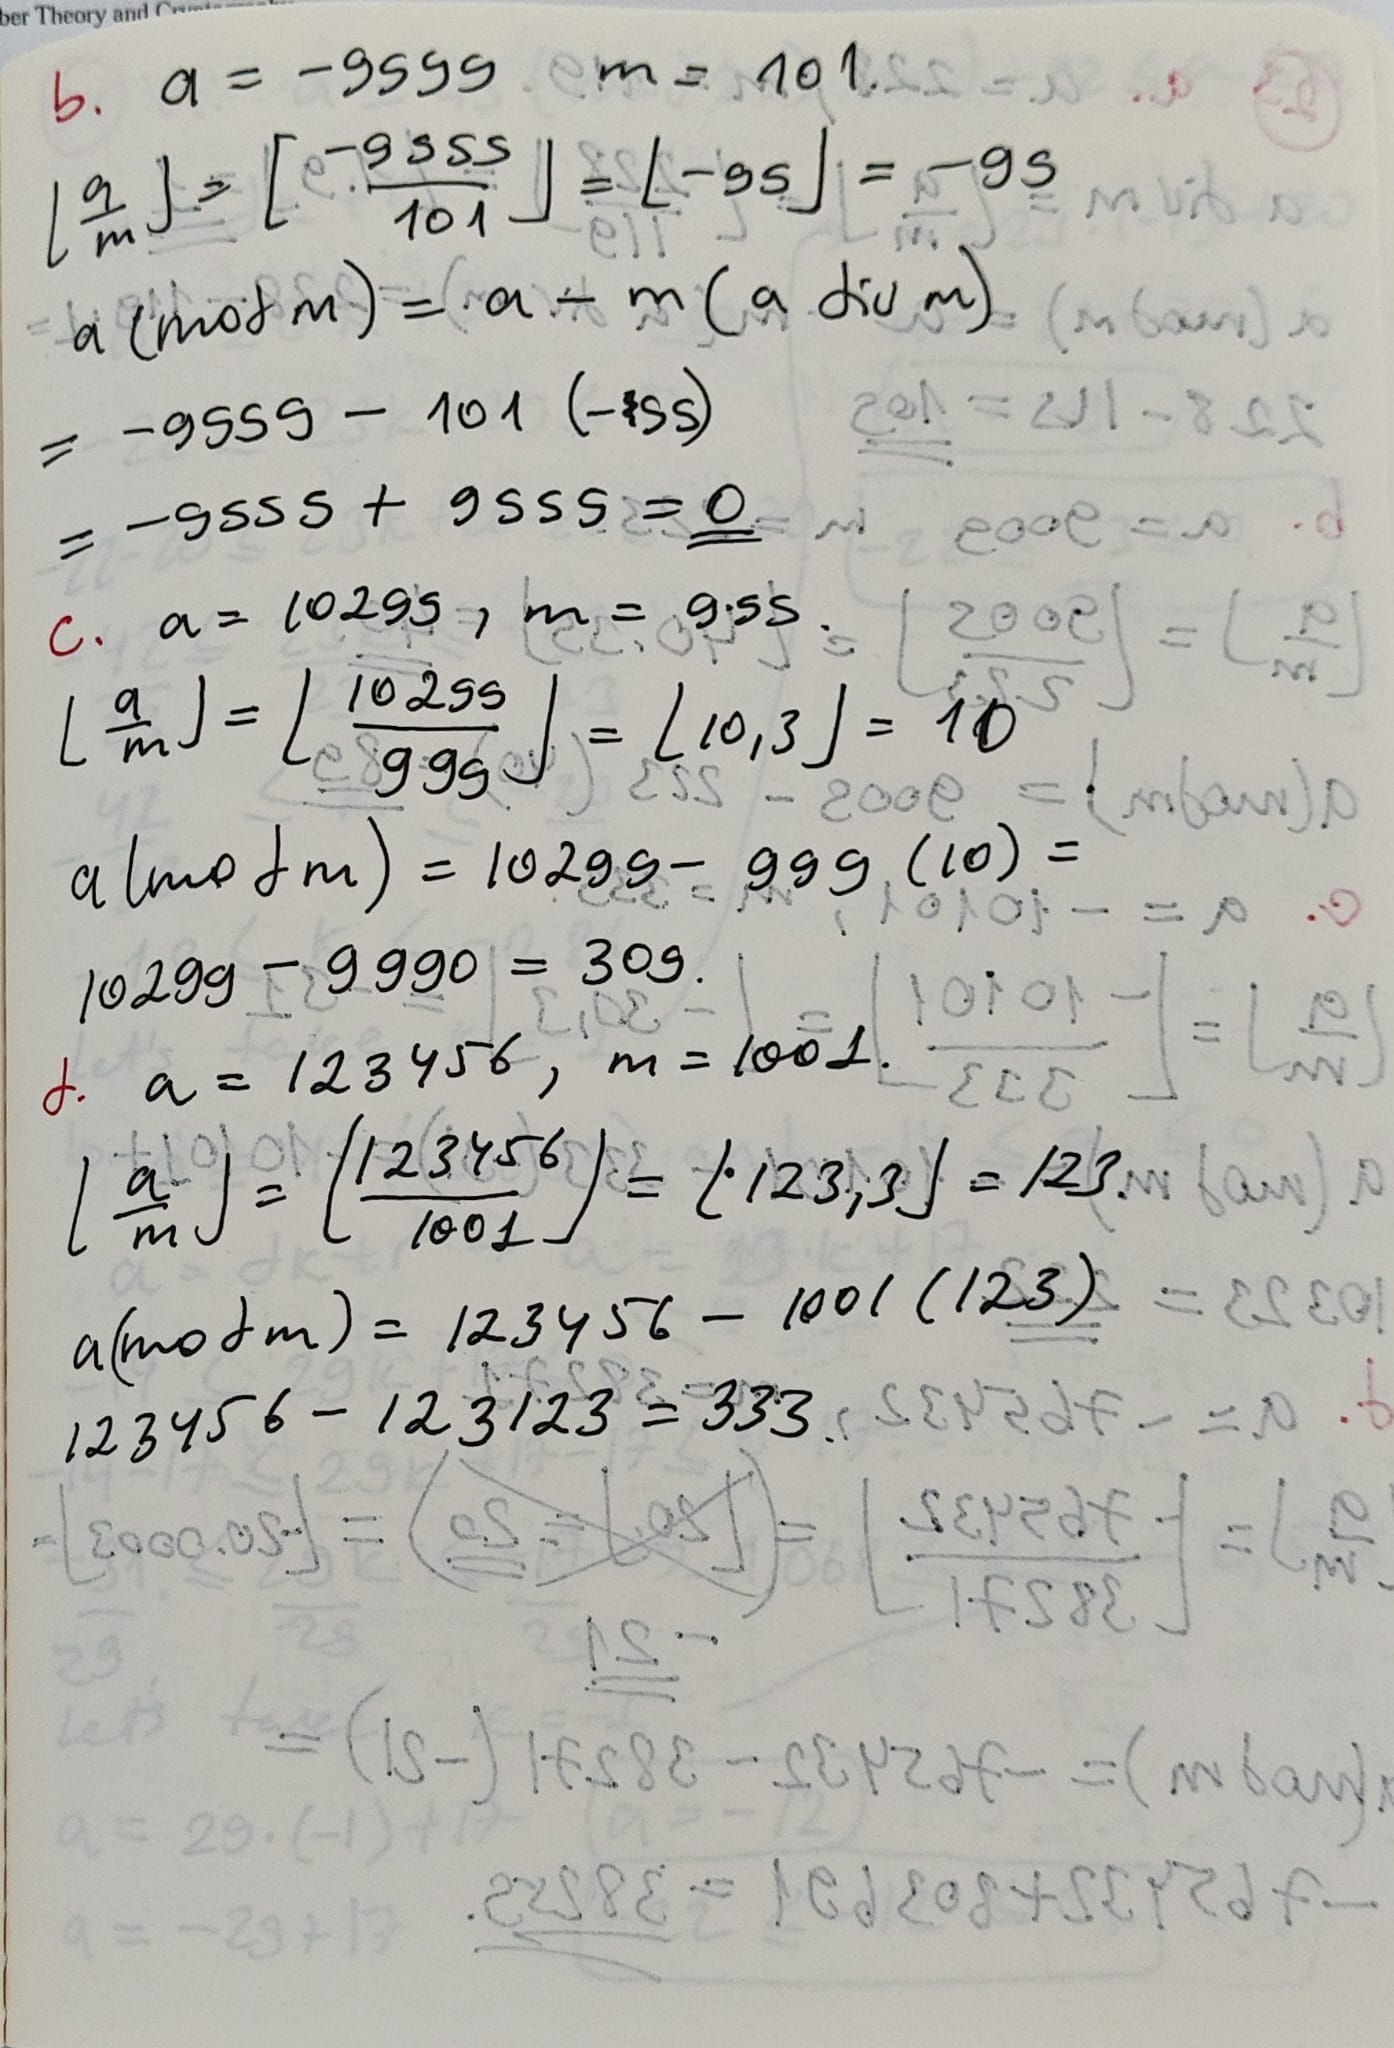 ber Theory and
b. a = -9999 m = 101.
⌊a/m⌋ = ⌊-9999/101⌋ = ⌊-99⌋ = -99
a (mod m) = a - m (a div m)
= -9999 - 101 (-99)
= -9999 + 9999 = 0
c. a = 10299, m = 999.
⌊a/m⌋ = ⌊10299/999⌋ = ⌊10,3⌋ = 10
a (mod m) = 10299 - 999 (10) =
10299 - 9990 = 309.
d. a = 123456, m = 1001.
⌊a/m⌋ = ⌊123456/1001⌋ = ⌊123,3⌋ = 123.
a (mod m) = 123456 - 1001 (123)
123456 - 123123 = 333.